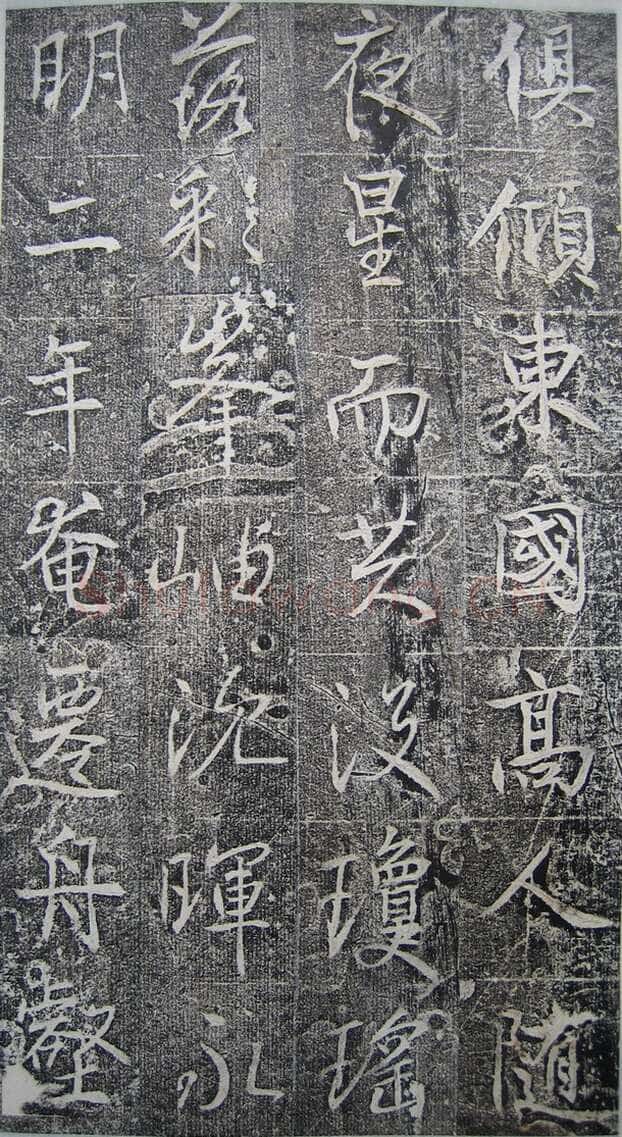 俱傾東國高人随
夜星而共没瓊瑤
落彩峯岫沈暉永
明二年奄遷舟壑